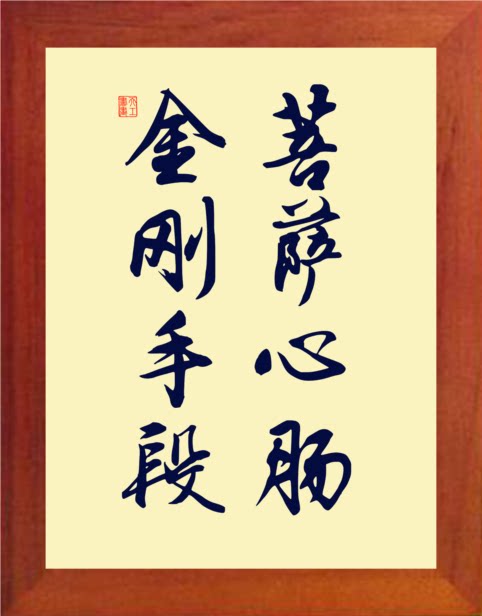 菩萨心肠
金刚手段